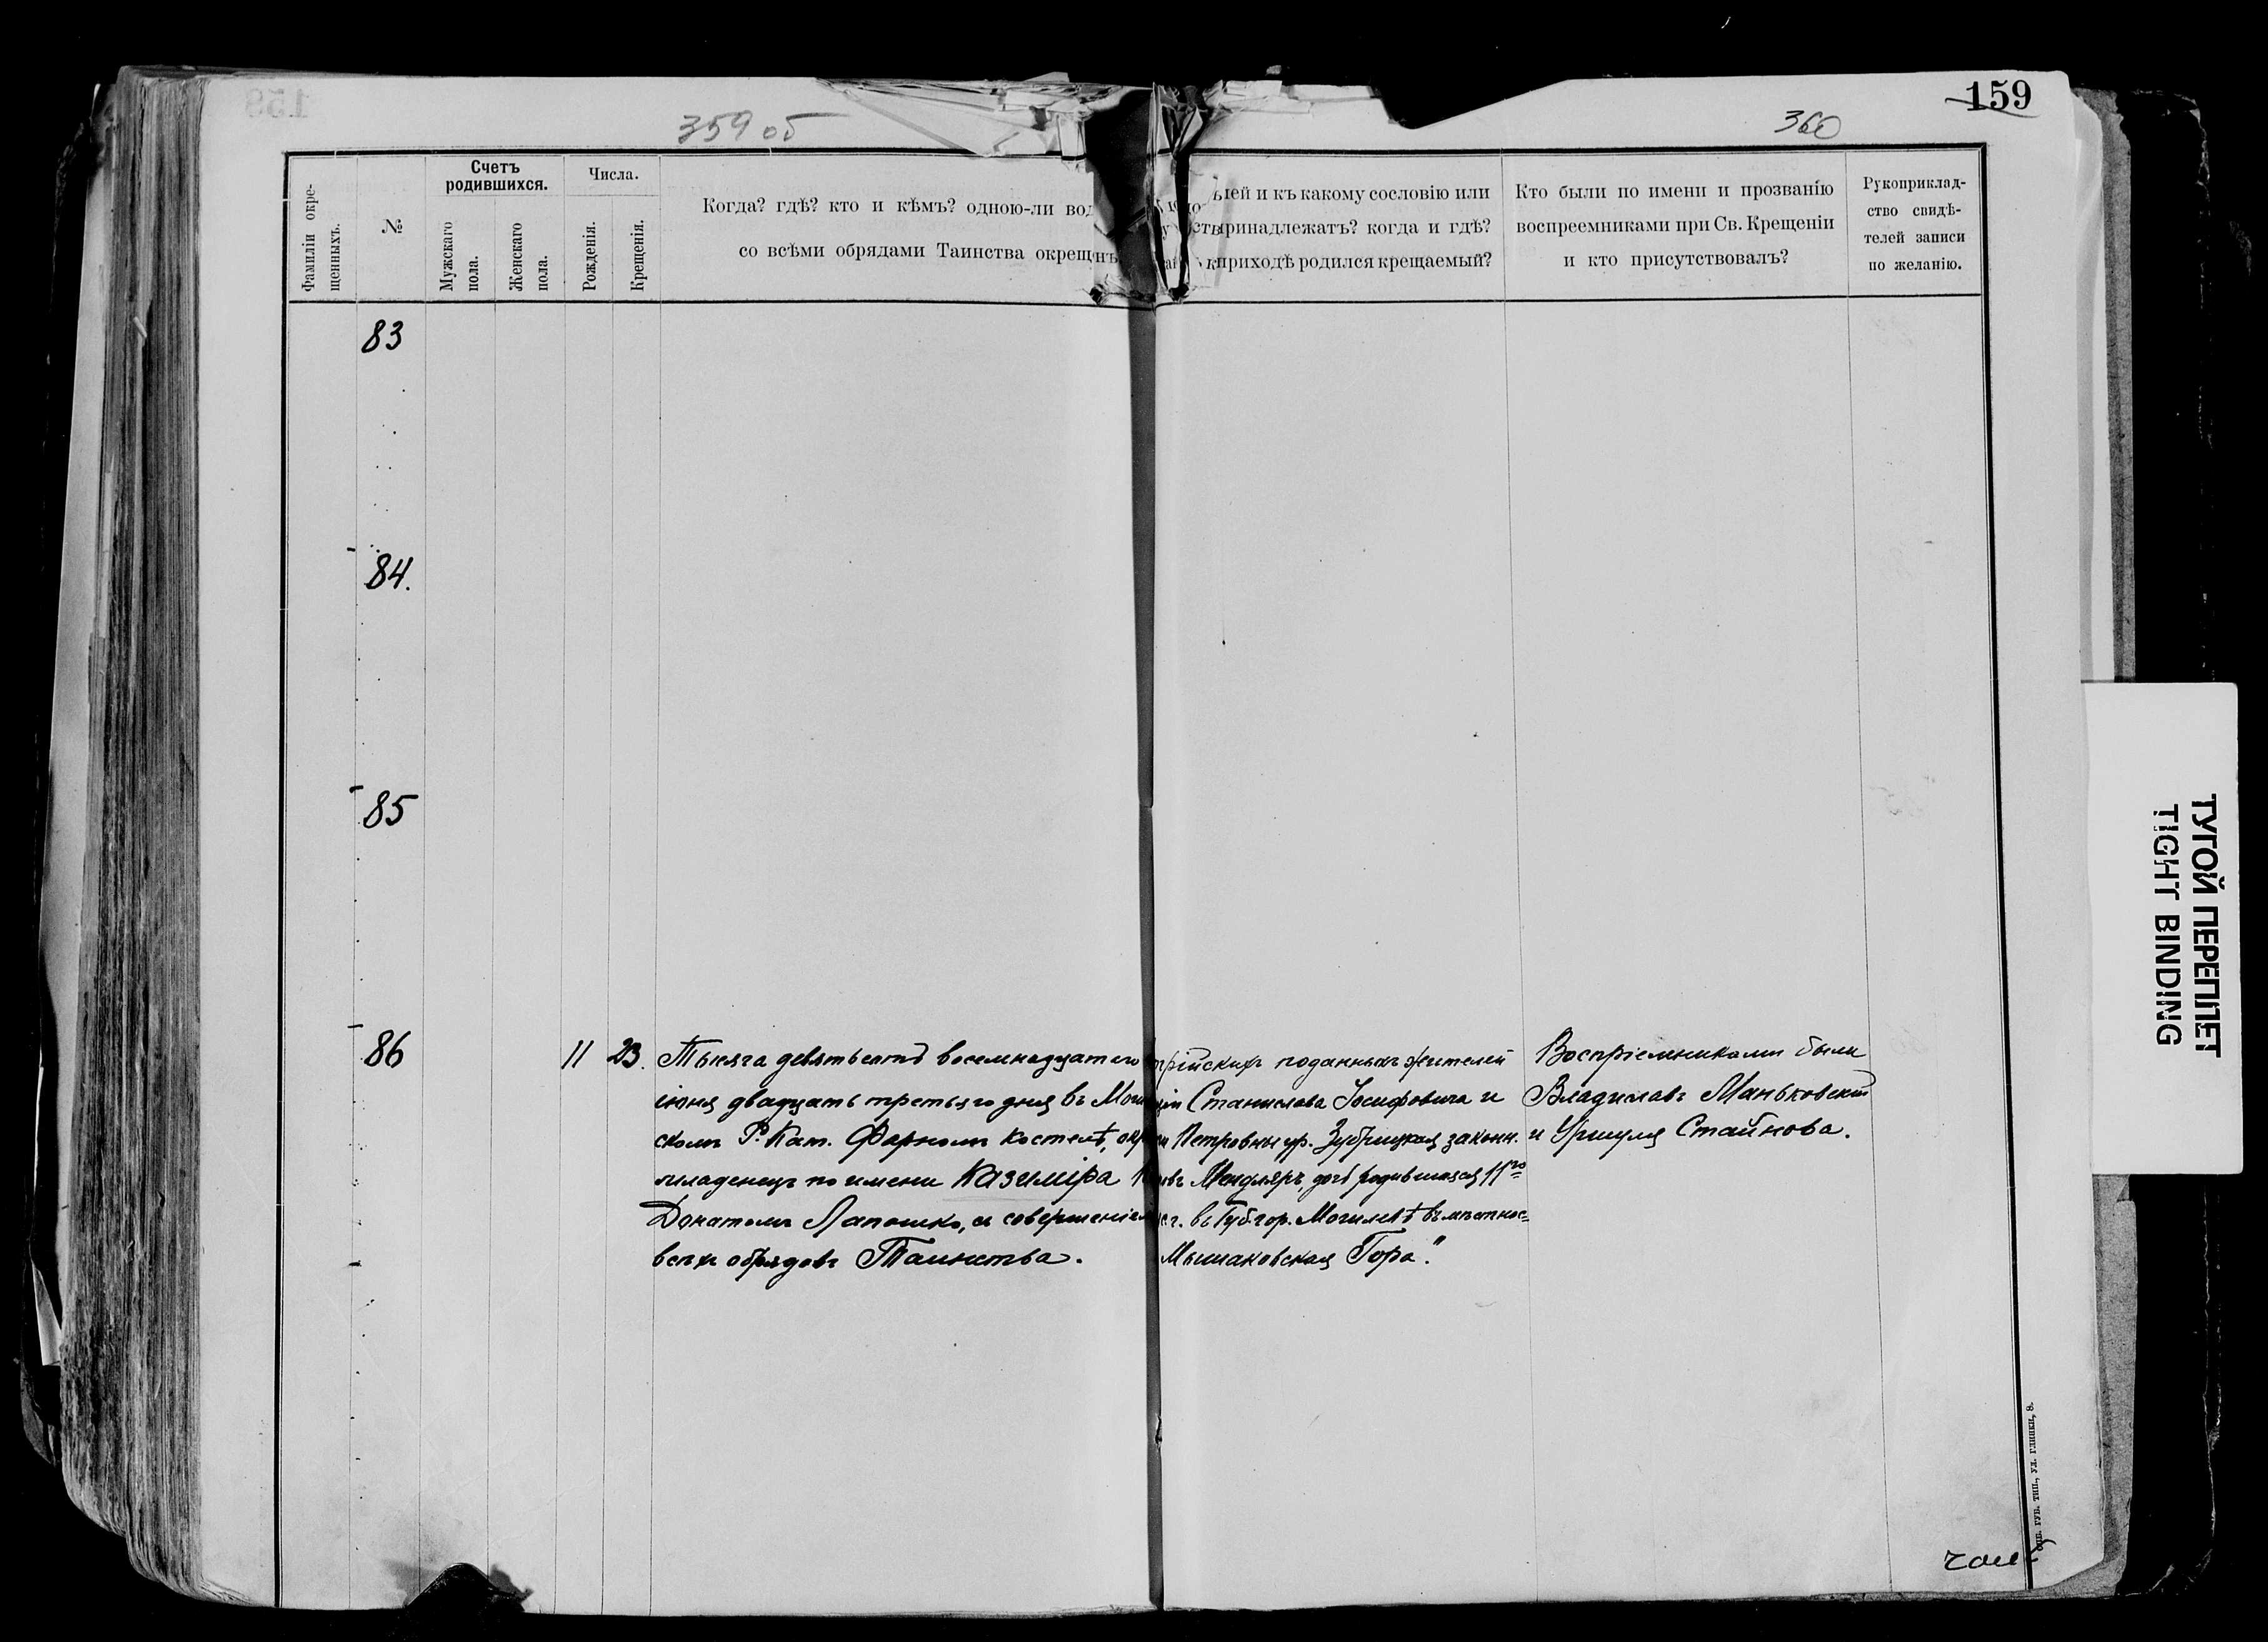 159
359 об
360
Фамиліи окре-
щенныхъ.
№
Счетъ
родившихся.
Мужскаго
пола.
Женскаго
пола.
Числа.
Рожденія.
Крещенія.
Когда? гдѣ? кто и кѣмъ? одною-ли вод
со всѣми обрядами Таинства окрещ
ьей и къ какому сословію или
принадлежатъ? когда и гдѣ?
приходѣ родился крещаемый?
Кто были по имени и прозванію
воспреемниками при Св. Крещеніи
и кто присутствовалъ?
Рукоприклад-
ство свидѣ-
телей записи
по желанію.
83
84.
85
86
11
23.
Тысяча девятьсотъ восемнадцатого
іюня двадцать третьяго дня въ Моги
скомъ Р. Кат. Фарномъ костелѣ, окр
младенецъ по имени Казиміра
Донатомъ Лапошко, съ совершеніем
всѣхъ обрядовъ Таинства.
трійскихъ поданныхъ жителей
Станислава Іосифовича и
Петровны ур. Зубрицкая законн.
Мендляръ, дочь родившаяся 11го
с.г. въ Губ. гор. Могилевѣ въ мѣстнос=
Мышаковская Гора".
Воспріемниками были
Владиславъ Маньковскій
и Уршуля Стайнова.
ТУГОЙ ПЕРЕПЛЕТ
TIGHT BINDING
ГУБ. ТИП., УЛ. ГЛИНКИ, 8.